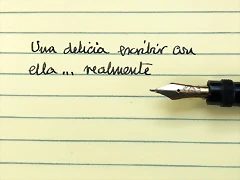 Una delicia escribir con
ella... realmente